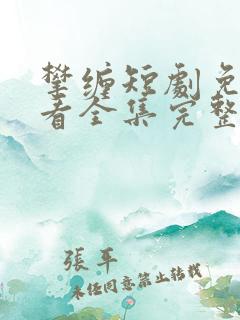 攀缠短剧免
看全集完整
張平
未经同意禁止转载